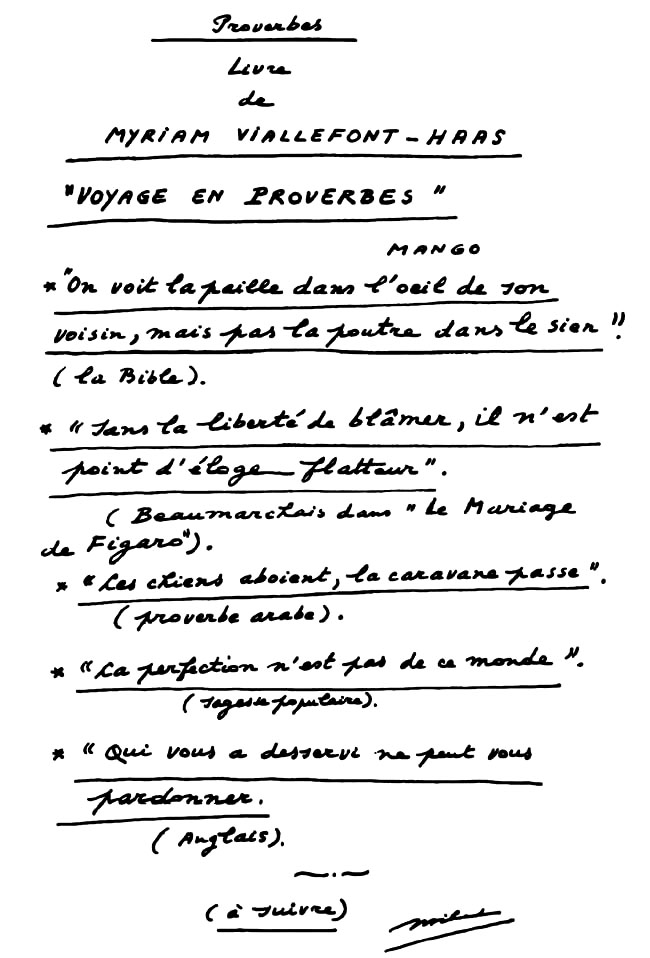 Proverbes
Livre
de
MYRIAM VIALLEFONT-HAAS
"VOYAGE EN PROVERBES"
MANGO
* "On voit la paille dans l'oeil de son
voisin, mais pas la poutre dans le sien"!
(la Bible).
* "Sans la liberté de blâmer, il n'est
point d'éloge flatteur".
(Beaumarchais dans "Le Mariage
de Figaro").
* "Les chiens aboient, la caravane passe".
(proverbe arabe).
* "La perfection n'est pas de ce monde".
(sagesse populaire).
* "Qui vous a desservi ne peut vous
pardonner.
(Anglais).
(à suivre)